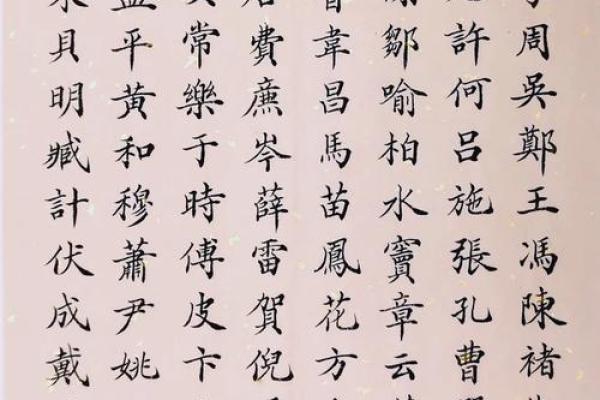 周吳鄭王馮陳褚
許何呂施張孔曹
鄒喻柏水竇章云
韋昌馬苗鳳花方
費廉岑薛雷賀倪
常樂于時傅皮卞
平黃和穆蕭尹姚
貝明臧計伏成戴